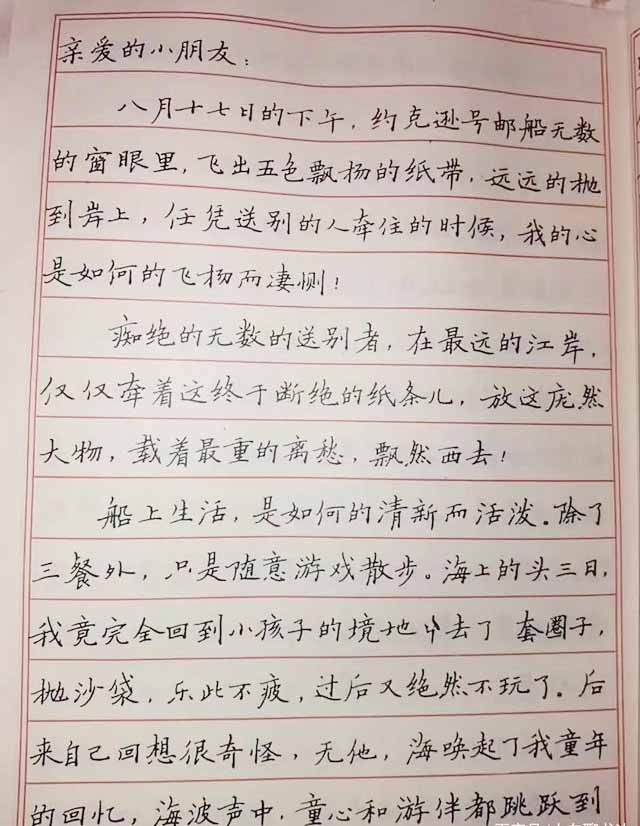 亲爱的小朋友：
八月十七日的下午，约克逊号邮船无数
的窗眼里，飞出五色飘扬的纸带，远远的抛
到岸上，任凭送别的人牵住的时候，我的心
是如何的飞扬而凄恻！
痴绝的无数的送别者，在最远的江岸，
仅仅牵着这终于断绝的纸条儿，放这庞然
大物，载着最重的离愁，飘然西去！
船上生活，是如何的清新而活泼。除了
三餐外，只是随意游戏散步。海上的头三日，
我竟完全回到小孩子的境地中去了 套圈子，
抛沙袋，乐此不疲，过后又绝然不玩了。后
来自己回想很奇怪，无他，海唤起了我童年
的回忆，海波声中，童心和游伴都跳跃到